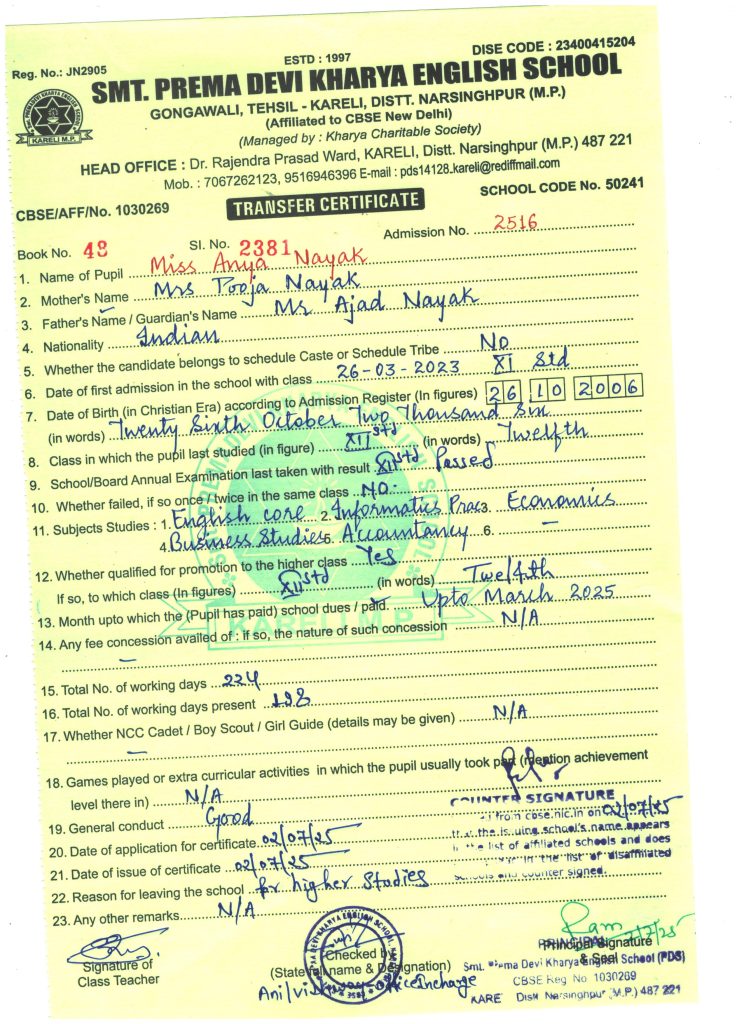 ESTD : 1997
DISE CODE : 23400415204
Reg. No.: JN2905
SMT. PREMA DEVI KHARYA ENGLISH SCHOOL
GONGAWALI, TEHSIL - KARELI, DISTT. NARSINGHPUR (M.P.)
(Affiliated to CBSE New Delhi)
(Managed by : Kharya Charitable Society)
KARELI M.P.
HEAD OFFICE : Dr. Rajendra Prasad Ward, KARELI, Distt. Narsinghpur (M.P.) 487 221
Mob. : 7067262123, 9516946396 E-mail : pds14128.kareli@rediffmail.com
CBSE/AFF/No. 1030269
TRANSFER CERTIFICATE
SCHOOL CODE No. 50241
Book No. 48 Sl. No. 2381 Admission No. 2516
1. Name of Pupil Miss Anya Nayak
2. Mother's Name Mrs Pooja Nayak
3. Father's Name / Guardian's Name Mr Ajad Nayak
4. Nationality Indian
5. Whether the candidate belongs to schedule Caste or Schedule Tribe No
6. Date of first admission in the school with class 26-03-2023 XI Std
7. Date of Birth (in Christian Era) according to Admission Register (In figures) 26 10 2006
(in words) Twenty Sixth October Two Thousand Six
8. Class in which the pupil last studied (in figure) XII std (in words) Twelfth
9. School/Board Annual Examination last taken with result XII std Passed
10. Whether failed, if so once / twice in the same class NO.
11. Subjects Studies : 1. English core 2. Informatics Prac 3. Economics
4. Business Studies 5. Accountancy 6. —
12. Whether qualified for promotion to the higher class Yes
If so, to which class (In figures) XII std (in words) Twelfth
13. Month upto which the (Pupil has paid) school dues / paid. Upto March 2025
KARELI M.P.
14. Any fee concession availed of : if so, the nature of such concession N/A
—
15. Total No. of working days 224
16. Total No. of working days present 198
17. Whether NCC Cadet / Boy Scout / Girl Guide (details may be given) N/A
—
18. Games played or extra curricular activities in which the pupil usually took part (mention achievement
level there in) N/A
COUNTER SIGNATURE
19. General conduct Good
from cbse.nic.in on 02/07/25
20. Date of application for certificate 02/07/25
the is uing school's name appears
the list of affiliated schools and does
21. Date of issue of certificate 02/07/25
in the list of disaffiliated
22. Reason for leaving the school for higher Studies
schools and counter signed.
23. Any other remarks N/A
Signature of
Class Teacher
Checked by
(State full name & Designation)
office incharge
Ram
2/7/25
PRINCIPAL
Principal Signature
& Seal
Smt. Prema Devi Kharya English School (PDS)
CBSE Reg No. 1030269
KARE Distt Narsinghpur (M.P.) 487 221